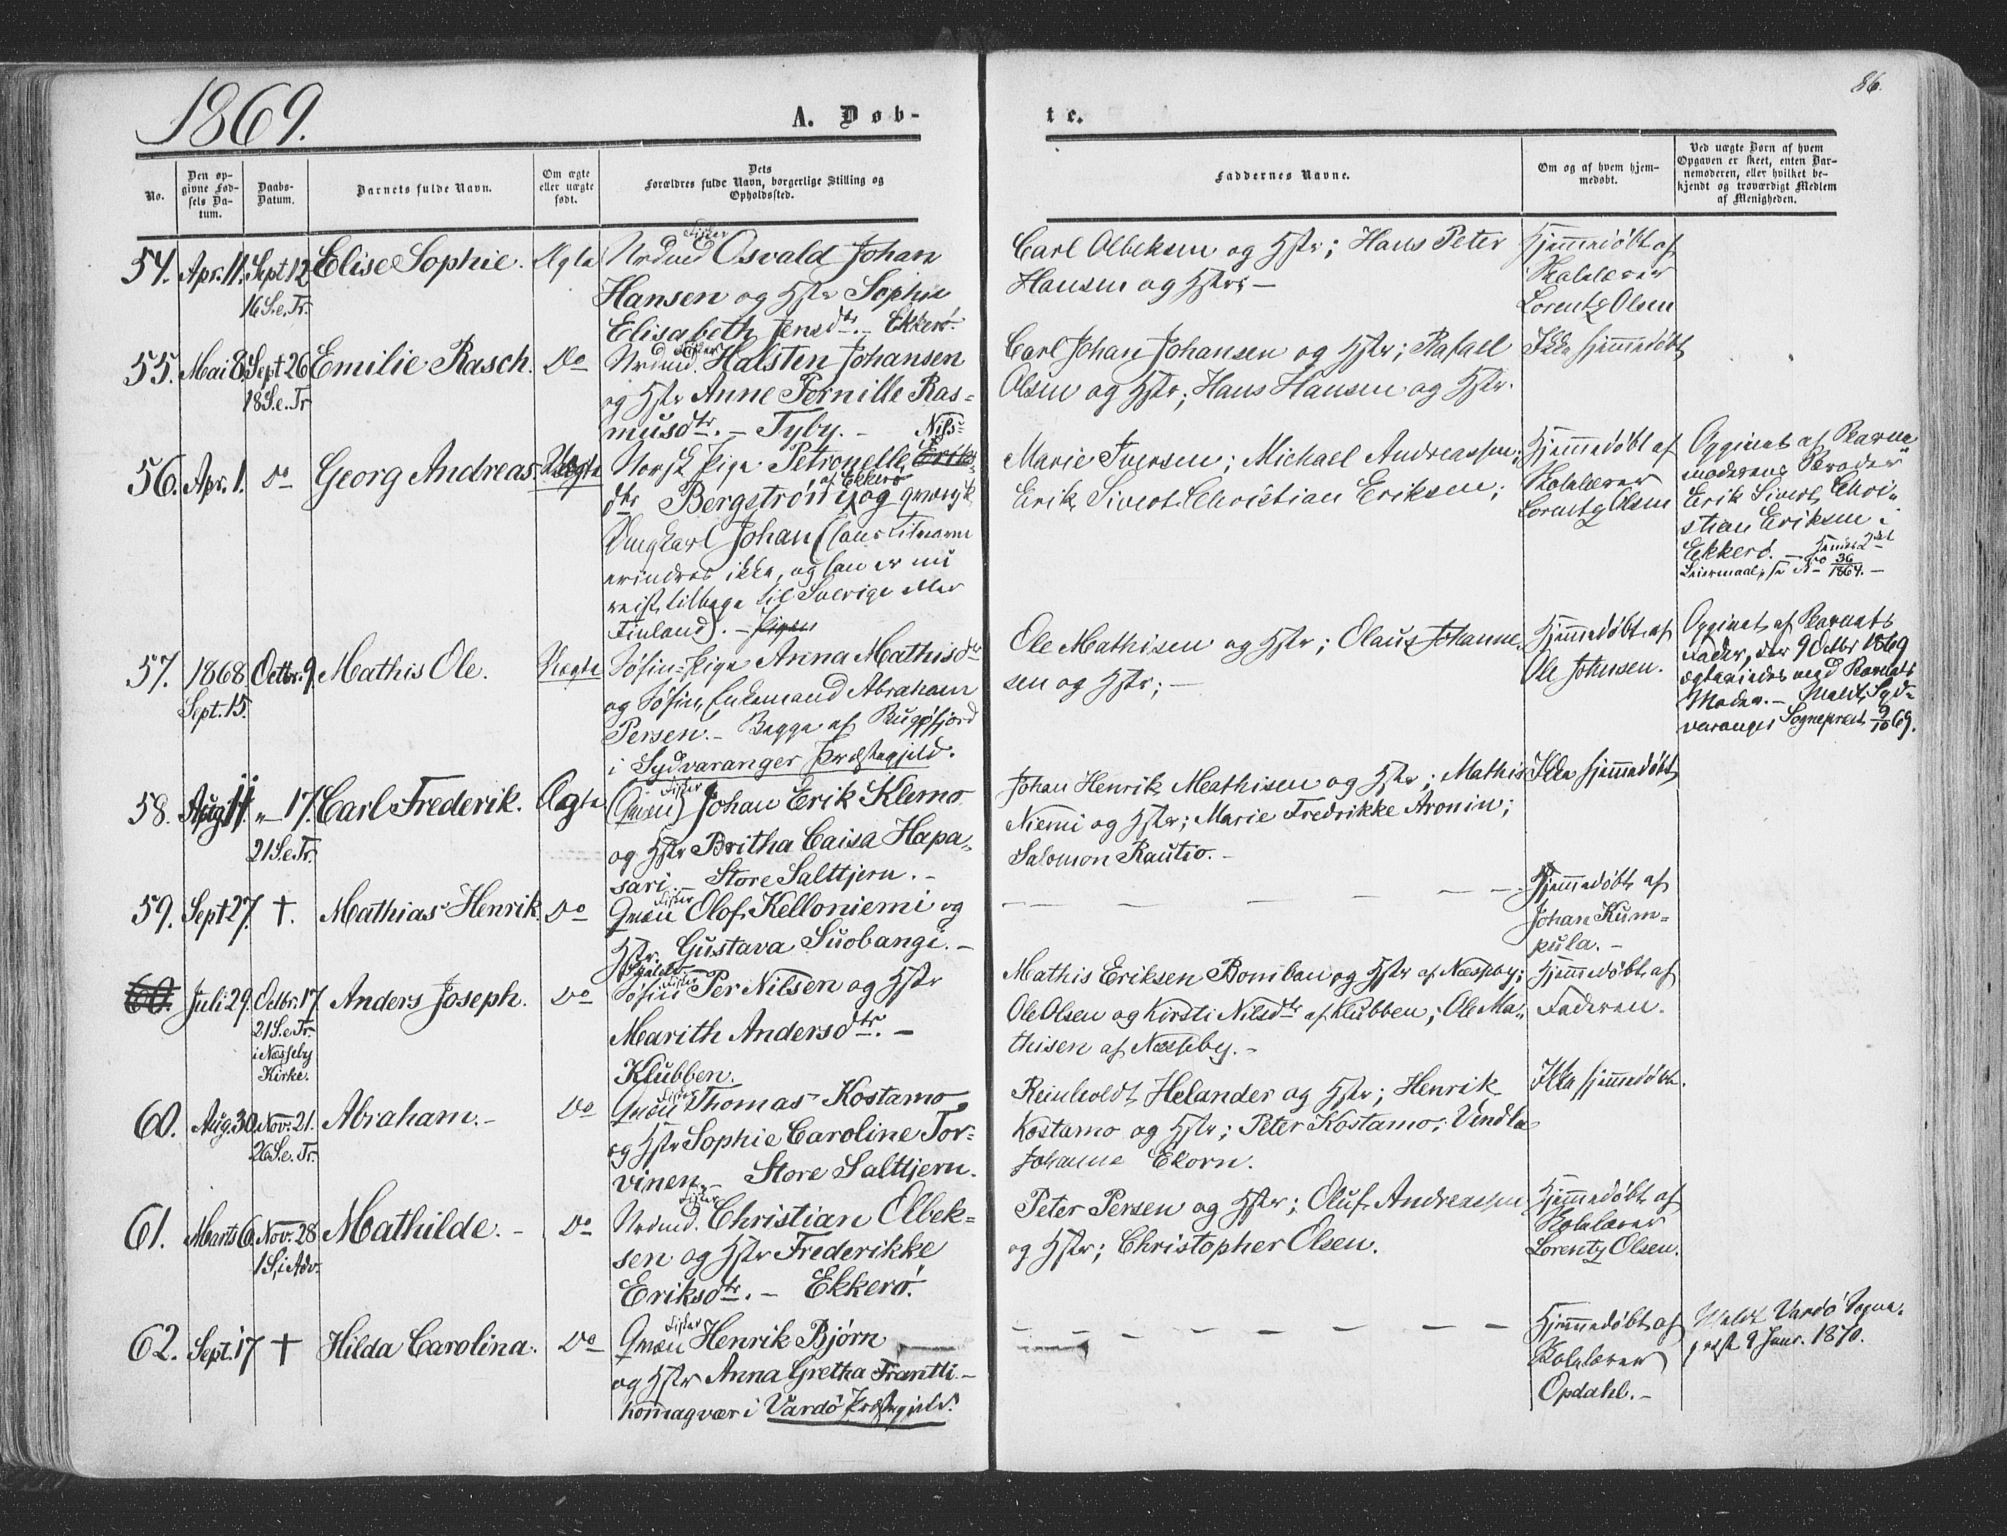 1869.
86.
A. Døb-
te.
No.
Den op-
givne Fød-
sels Da-
tum.
Daabs-
Datum.
Barnets fulde Navn.
Om ægte
eller uægte
født.
Dets
Forældres fulde Navn, borgerlige Stilling og
Opholdssted.
Faddernes Navne.
Om og af hvem hjem-
medøbt.
Ved uægte Børn af hvem
Opgaven er skeet, enten Bar-
nemoderen, eller hvilket be-
kjendt og troværdigt Medlem
af Menigheden.
54. Apr. 11. Sept 12 Elise Sophie. Ægte
16 S. e. Tr.
Fisker
Nrdmd Osvald Johan
Hansen og Hstr Sophie
Elisabeth Jensdtr. - Ekkerö.
Carl Olbeksen og Hstr; Hans Peter
Hansen og Hstr; -
Hjemmedøbt af
Skolelærer
Lorentz Olsen
55. Mai 8. Sept 26 Emilie Rasch. Do
18 S. e. Tr
Fisker
Nrdmd. Halsten Johansen
og Hstr Anne Pernille Ras=
musdtr. - Tyby. -
Carl Johan Johansen og Hstr; Rafael
Olsen og Hstr; Hans Hansen og Hstr.
Ikke hjemmedøbt
56. Apr. 1. do Georg Andreas. Uægte
Nils=
Norsk Pige Petronelle Eriks
af Ekkerö
dtr Bergström og qvænsk
Ungkarl Johan (hans Tilnavn
erindres ikke, og han er nu
reist tilbage til Sverige eller
Finland). - Pigen
Marie Iversen; Michael Andreassen;
Erik Sivert Christian Eriksen;
Hjemmedøbt af
Skolelærer
Lorentz Olsen
Opgivet af Barne
moderens Broder
Erik Sivert Chri-
stian Eriksen i
Ekkerö. - Hendes 2det
Leiermaal, se No 36/1864. -
57. 1868 Octbr. 9. Mathis Ole. Uægte
Sept. 15.
Søfin=Pige Anna Mathisdtr
og Søfin, Enkemand Abraham
Persen. - Begge af Bugøfjord
i Sydvaranger Præstegjeld.
Ole Mathisen og Hstr; Olaus Johanne-
sen og Hstr; -
Hjemmedøbt af
Ole Johnsen.
Opgivet af Barnets
Fader, der 9 Octbr 1869
ægteviedes med Barnets
Moder. - Meldt Syd-
varanger Sognepræst 9/10 69.
58. Aug 11 - 17. Carl Frederik. Ægte
21 S. e. Tr.
Fisker
(Qvæn) Johan Erik Klemo
og Hstr Britha Caisa Hapa-
sari. - Store Salttjern. -
Johan Henrik Mathisen og Hstr; Mathis
Niemi og Hstr; Marie Fredrikke Aronin;
Salomon Rautio. -
Ikke hjemmedøbt
59. Sept 27. †. Mathias Henrik. Do
Fisker
Qvæn Olof Kelloniemi og
Hstr. Gustava Suobangi. -
Hjemmedøbt af
Johan Kum=
pula. -
60. Juli 29. Octbr. 17 Anders Joseph. Do
21 S. e. Tr.
i Næsseby
Kirke.
Fisker
Søfin Per Nilsen og Hstr
Marith Andersdtr. -
Klubben.
Mathis Eriksen Boniban og Hstr af Næsseby;
Ole Olsen og Kirsti Nilsdtr af Klubben; Ole Ma-
thisen af Næsseby. -
Hjemmedøbt af
Faderen.
60. Aug. 30. Nov. 21. Abraham. - Do
26 S. e. Tr.
Fisker
Qvæn Thomas Kostamo
og Hstr Sophie Caroline Tor=
vinen. - Store Salttjern.
Reinholdt Helander og Hstr; Henrik
Kostamo og Hstr; Peter Kostamo; Vendla
Johanne Ekorn.
Ikke hjemmedøbt.
61. Marts 6. Nov. 28 Mathilde. - Do
1 S. i Adv.
Fisker
Nrdmd. Christian Olbek=
sen og Hstr Frederikke
Eriksdtr. - Ekkerö.
Peter Persen og Hstr; Oluf Andreassen
og Hstr; Christopher Olsen.
Hjemmedøbt af
Skolelærer
Lorentz Olsen.
62. Sept. 17 † Hilda Carolina. Do
Fisker
Qvæn Henrik Bjørn
og Hstr Anna Gretha Frantti -
homagvær i Vardö Præstegjeld.
Hjemmedøbt af
Skolelærer
Opdahl. -
Meldt Vardö Sogne-
præst 9 Janr. 1870.